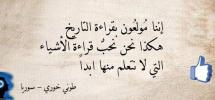 إننا مُولعُون بقراءة التاريخ
هكذا نحن نحبُّ قراءةَ الأشياء
التي لا نتعلم منها أبداً
طوني خوري - سوريا